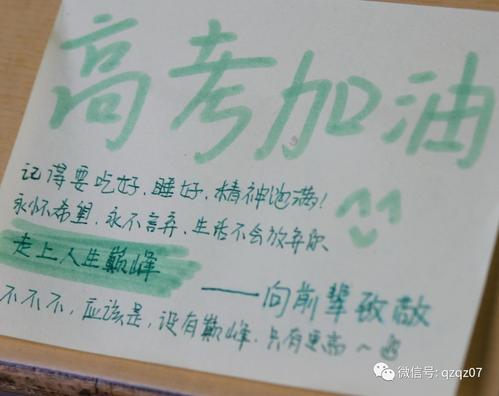 高考加油
记得要吃好、睡好、精神饱满!
永怀希望,永不言弃,生活不会放弃你、
走上人生巅峰
——向前辈致敬
不不不,应该是,没有巅峰,只有更高~
微信号: qzqz07